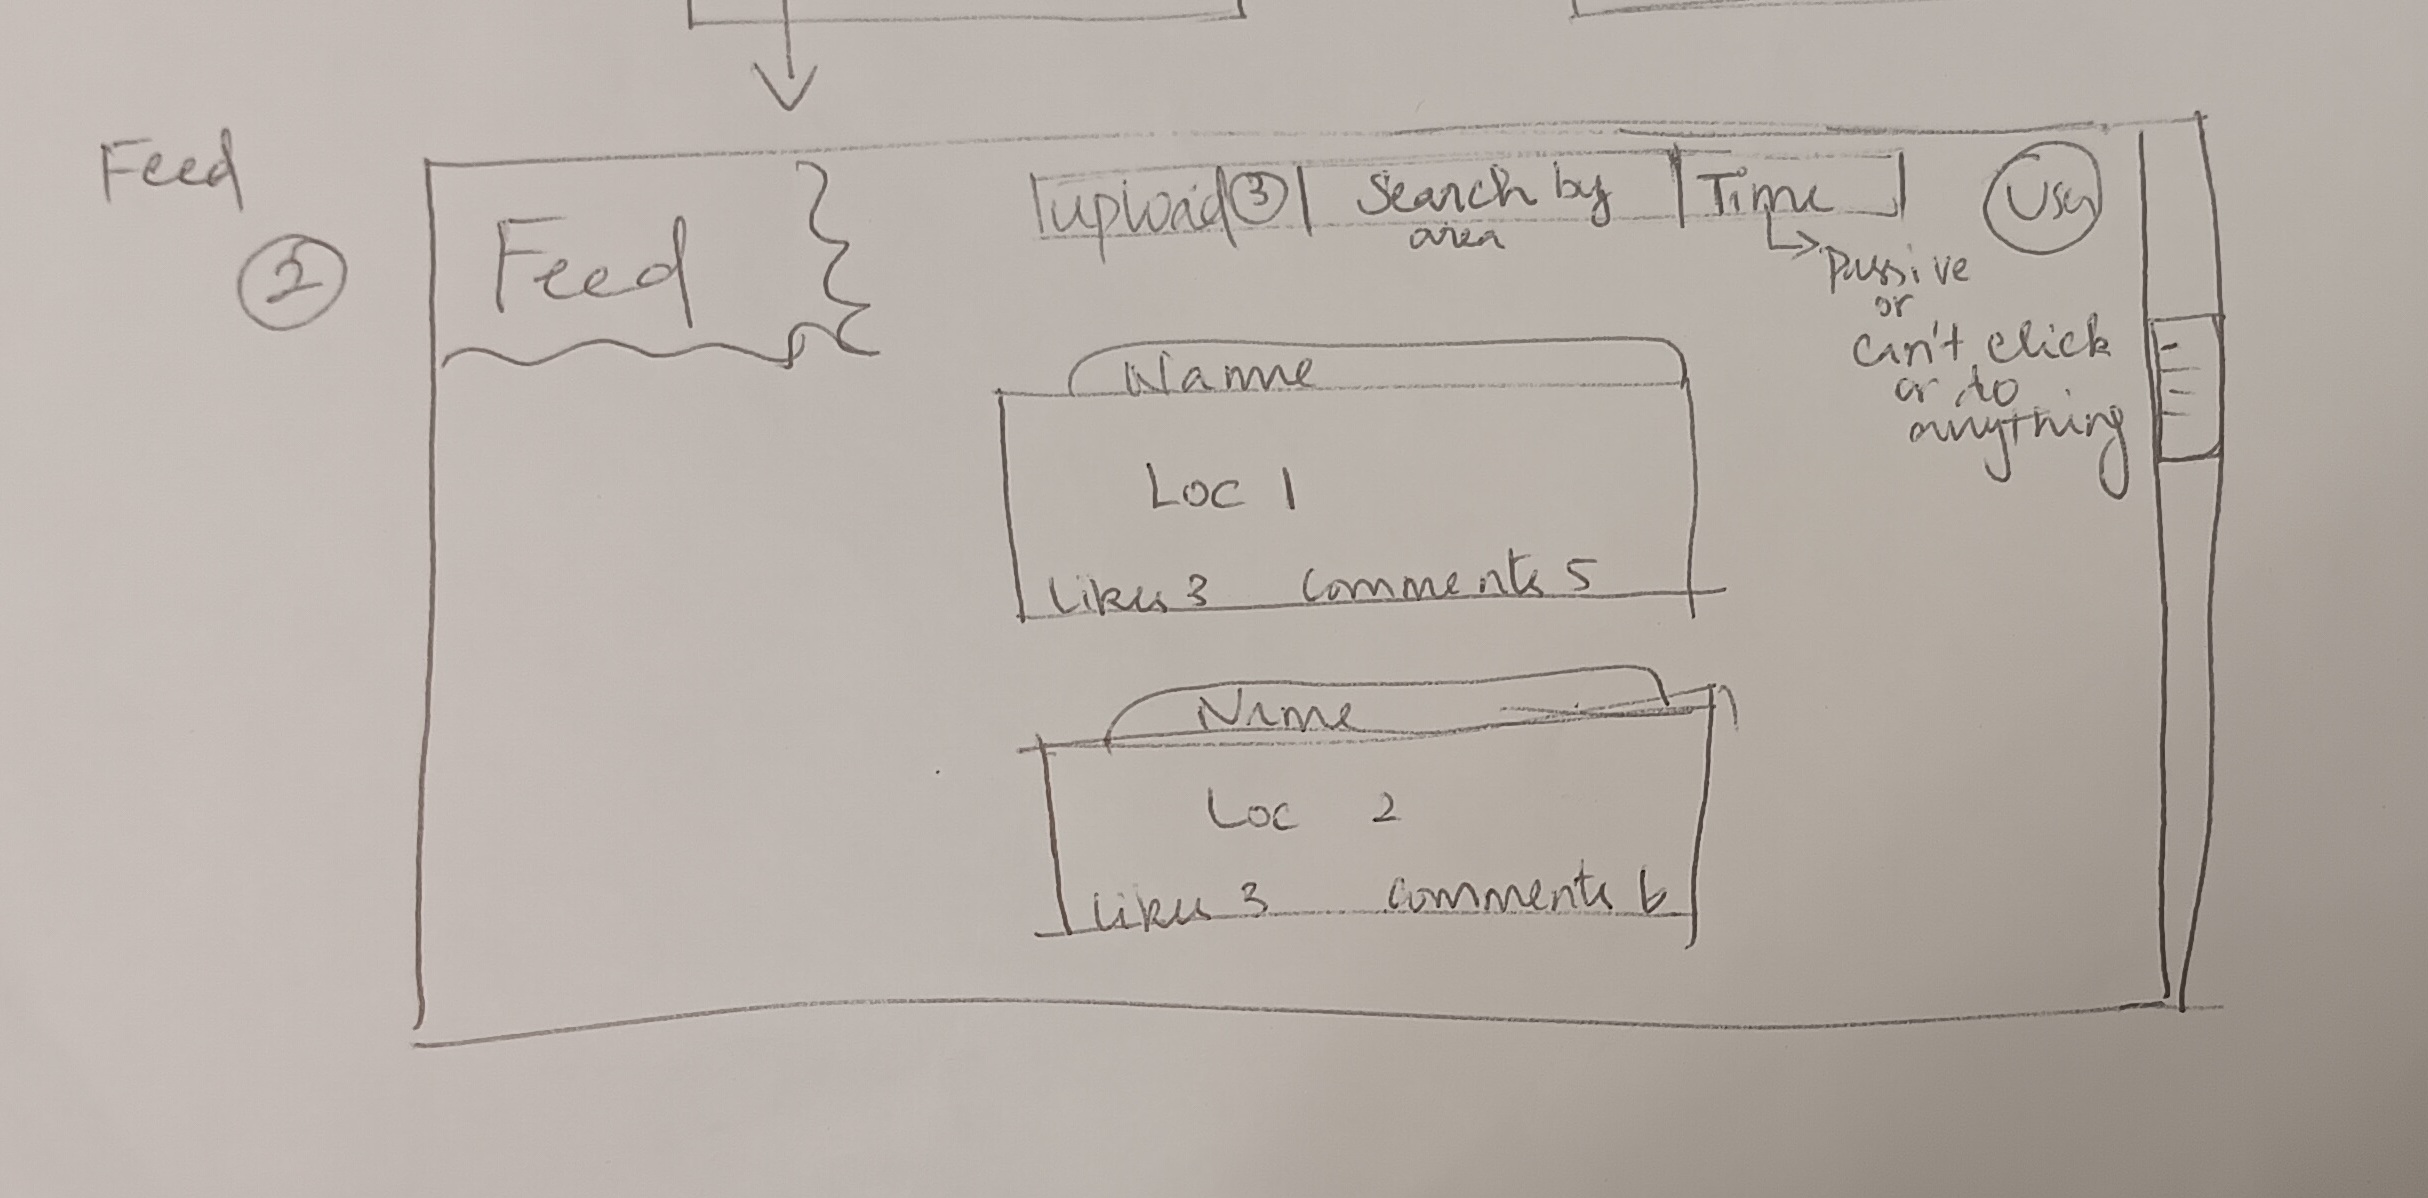 Feed
2
Feed
upload 3 Search by area Time User
passive
or
can't click
or to
anything
Name
Loc 1
likes 3 comments 5
Name
Loc 2
likes 3 comments 6